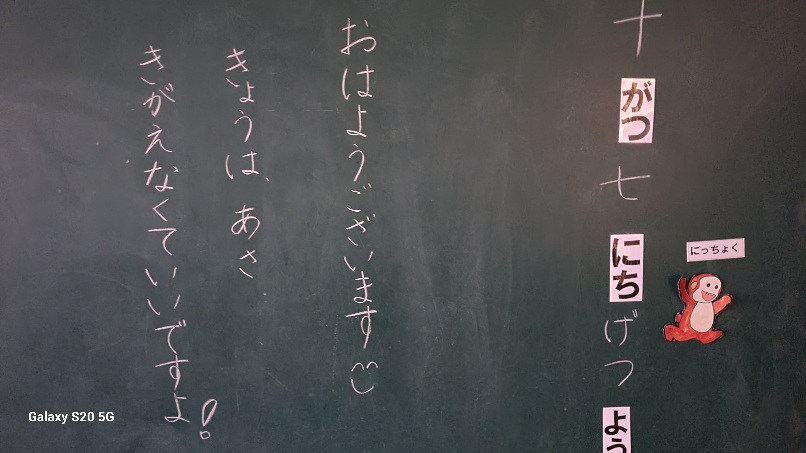 にっちょく
十がつ七にちげつよう
おはようございます
きょうは、あさ
きがえなくていいですよ!
Galaxy S20 5G